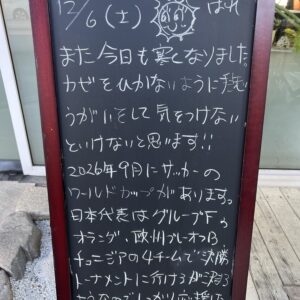 12/6(土) はれ
また今日も寒くなりました。
カゼをひかないように手洗
うがいをして気をつけない
といけないと思います!!
2026年9月にサッカーの
ワールドカップがあります。
日本代表はグループFで
オランダ、欧州プレーオフB、
チュニジアの4チームで決勝
トーナメントに行けるか決まる